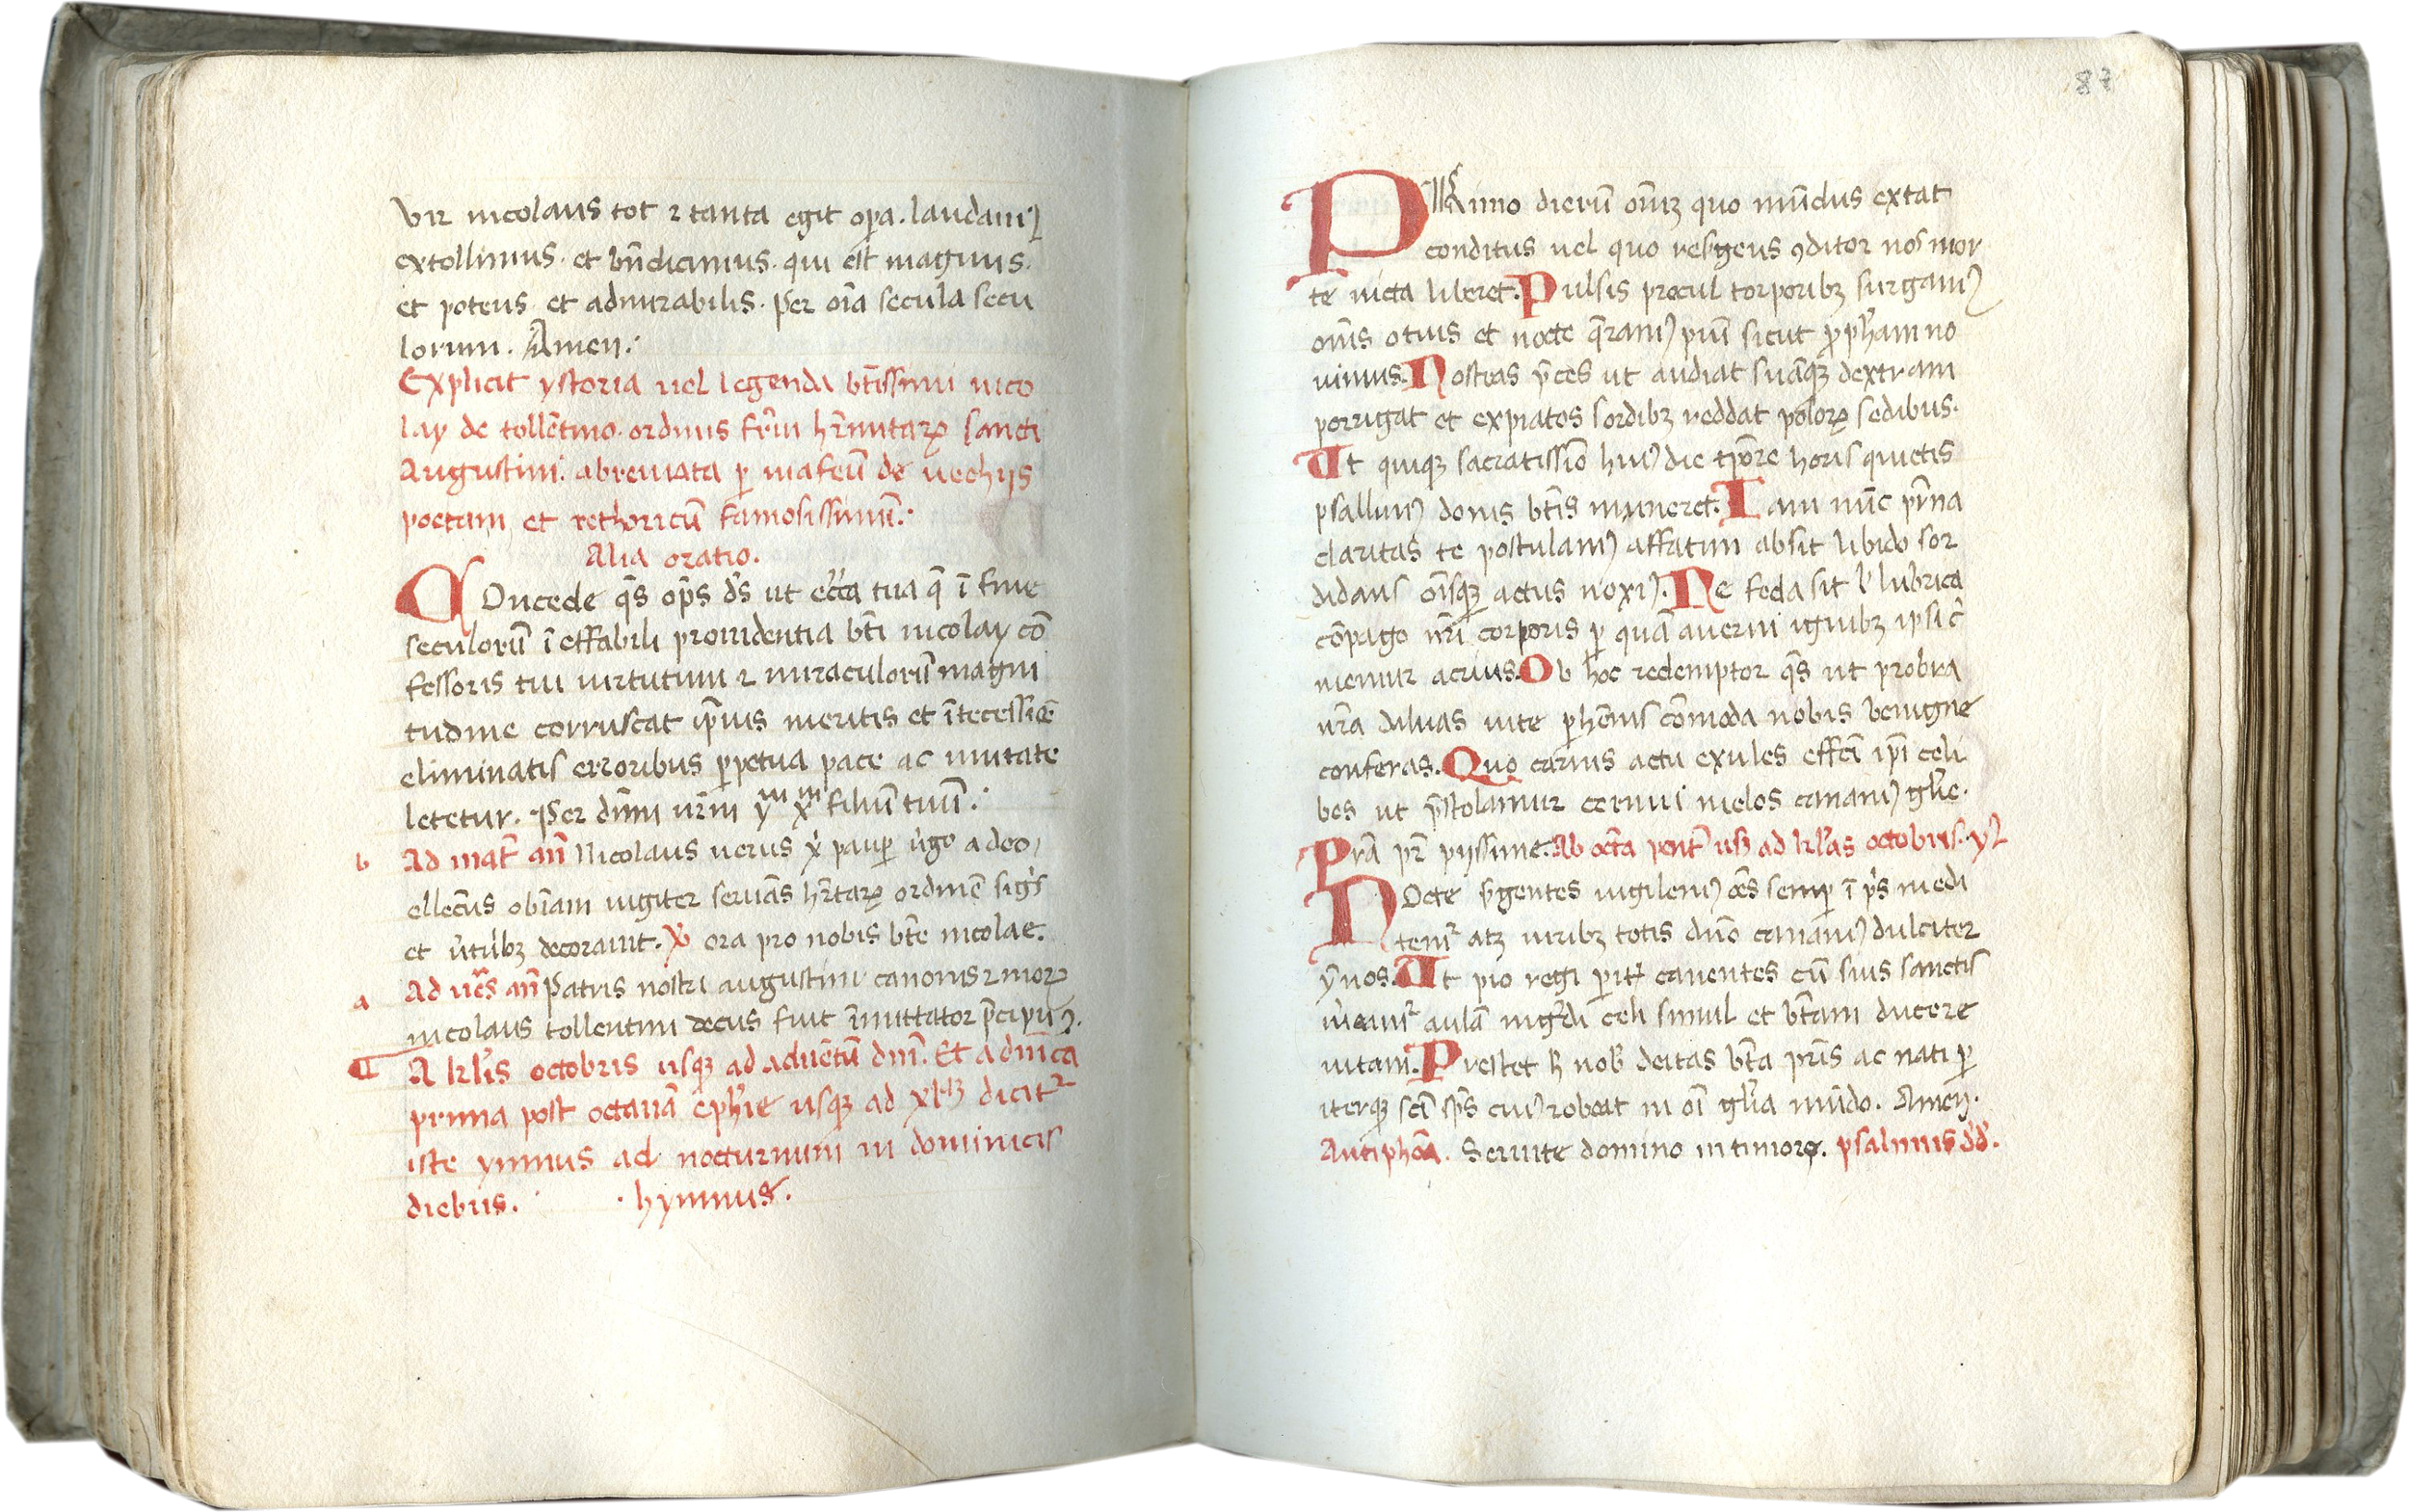 vir nicolaus tot ⁊ tanta egit op̄a. laudamꝰ
extollimus. et bn̄dicimus. qui est magnus.
et potens et admirabilis. Per oīa secula secu
lorum. Amen.
Explicit ystoria uel legenda bt̄issimi nico
lay de tollētino. ordinis fr̄m hr̄emitaꝝ sancti
Augustini. abreuiata ꝑ mafeū de uechijs
poetam et rethoricū famosissimū.
Alia oratio.
COncede q̄s op̄s ds̄ ut ecc̄a tua q̄ ī fine
seculorū īeffabili prouidentia bt̄i nicolay cō
fessoris tui uirtutum ⁊ miraculorū magni
tudine corruscat ip̄ius meritis et ītecessiōe
eliminatis erroribus ꝑpetua pace ac unitate
letetur. Per dn̄m nr̄m yᵐ xᵐ filiū tuū.
b Ad mat̄ an̄ Nicolaus uerus xp̄i pauꝑ uͥgo a deo
ellectus obīam iugiter seruās hr̄itaꝝ ordinē sigͥs
et uͥtutibꝫ decorauit. ℣ ora pro nobis bt̄e nicolae.
a Ad ues̄ an̄ Patris nostri augustini canonis ⁊ moꝝ
nicolaus tollentini decus fuit īmittator p̄cipuꝰ.
¶ A kl̄is octobris usqꝫ ad aduētū dn̄i. Et a dn̄ica
prima post octauā ep̄hie usqꝫ ad xlᵐ dicit᷑
iste ymnus ad nocturnum in dominicis
diebus. hymnus.
87
PRimo dierū om̄iꝫ quo mūdus extat
conditus uel quo resͬgens ꝯditor nos mor
te uicta liberet. Pulsis procul torporibꝫ surgamꝰ
om̄s otius et nocte q̄ramꝰ piū sicut ꝓph̄am no
uimus. Nostras p̄ces ut audiat suāqꝫ dextram
porrigat et expiatos sordibꝫ reddat poloꝝ sedibus.
Ut quiqꝫ sacratissīo huiꝰ die tp̄ore horis quietis
psallimꝰ donis bt̄is muneret. Iam nūc pr̄na
claritas te postulamꝰ affatim absit libido sor
didans oīsqꝫ actus noxiꝰ. Ne feda sit ł lubrica
cōpago nr̄i corporis ꝑ quā auerni ignibꝫ ipsi c̄
memur acrius. Ob hoc redemptor q̄s ut probra
nr̄a diluas uite ꝑhēnis cōmoda nobis benigne
conferas. Quo carnis actu exules effc̄i ip̄i celi
bes ut p̄stolamur cernui melos canamꝰ glīe.
Prā pr̄ pijssime. Ab octā pent̄ usqꝫ ad kl̄as octobris. yꝰ
NOcte sͬgentes uigilemꝰ oēs semꝑ ī ps̄ medi
tem᷑ atqꝫ uiribꝫ totis dn̄o canamꝰ dulciter
ȳnos. Ut pio regi ꝑit̄ canentes cū suis sanctis
mͤeam᷑ aulā ingͬdi celi simul et bt̄am ducere
uitam. Prestet h̄ nob̄ deitas bt̄a pr̄is ac nati ꝑ
iterqꝫ sc̄i sp̄s cuiꝰ reboat in oī glīa mūdo. Amen.
Antiphoā. Seruite domino in timore. psalmus dd̄.